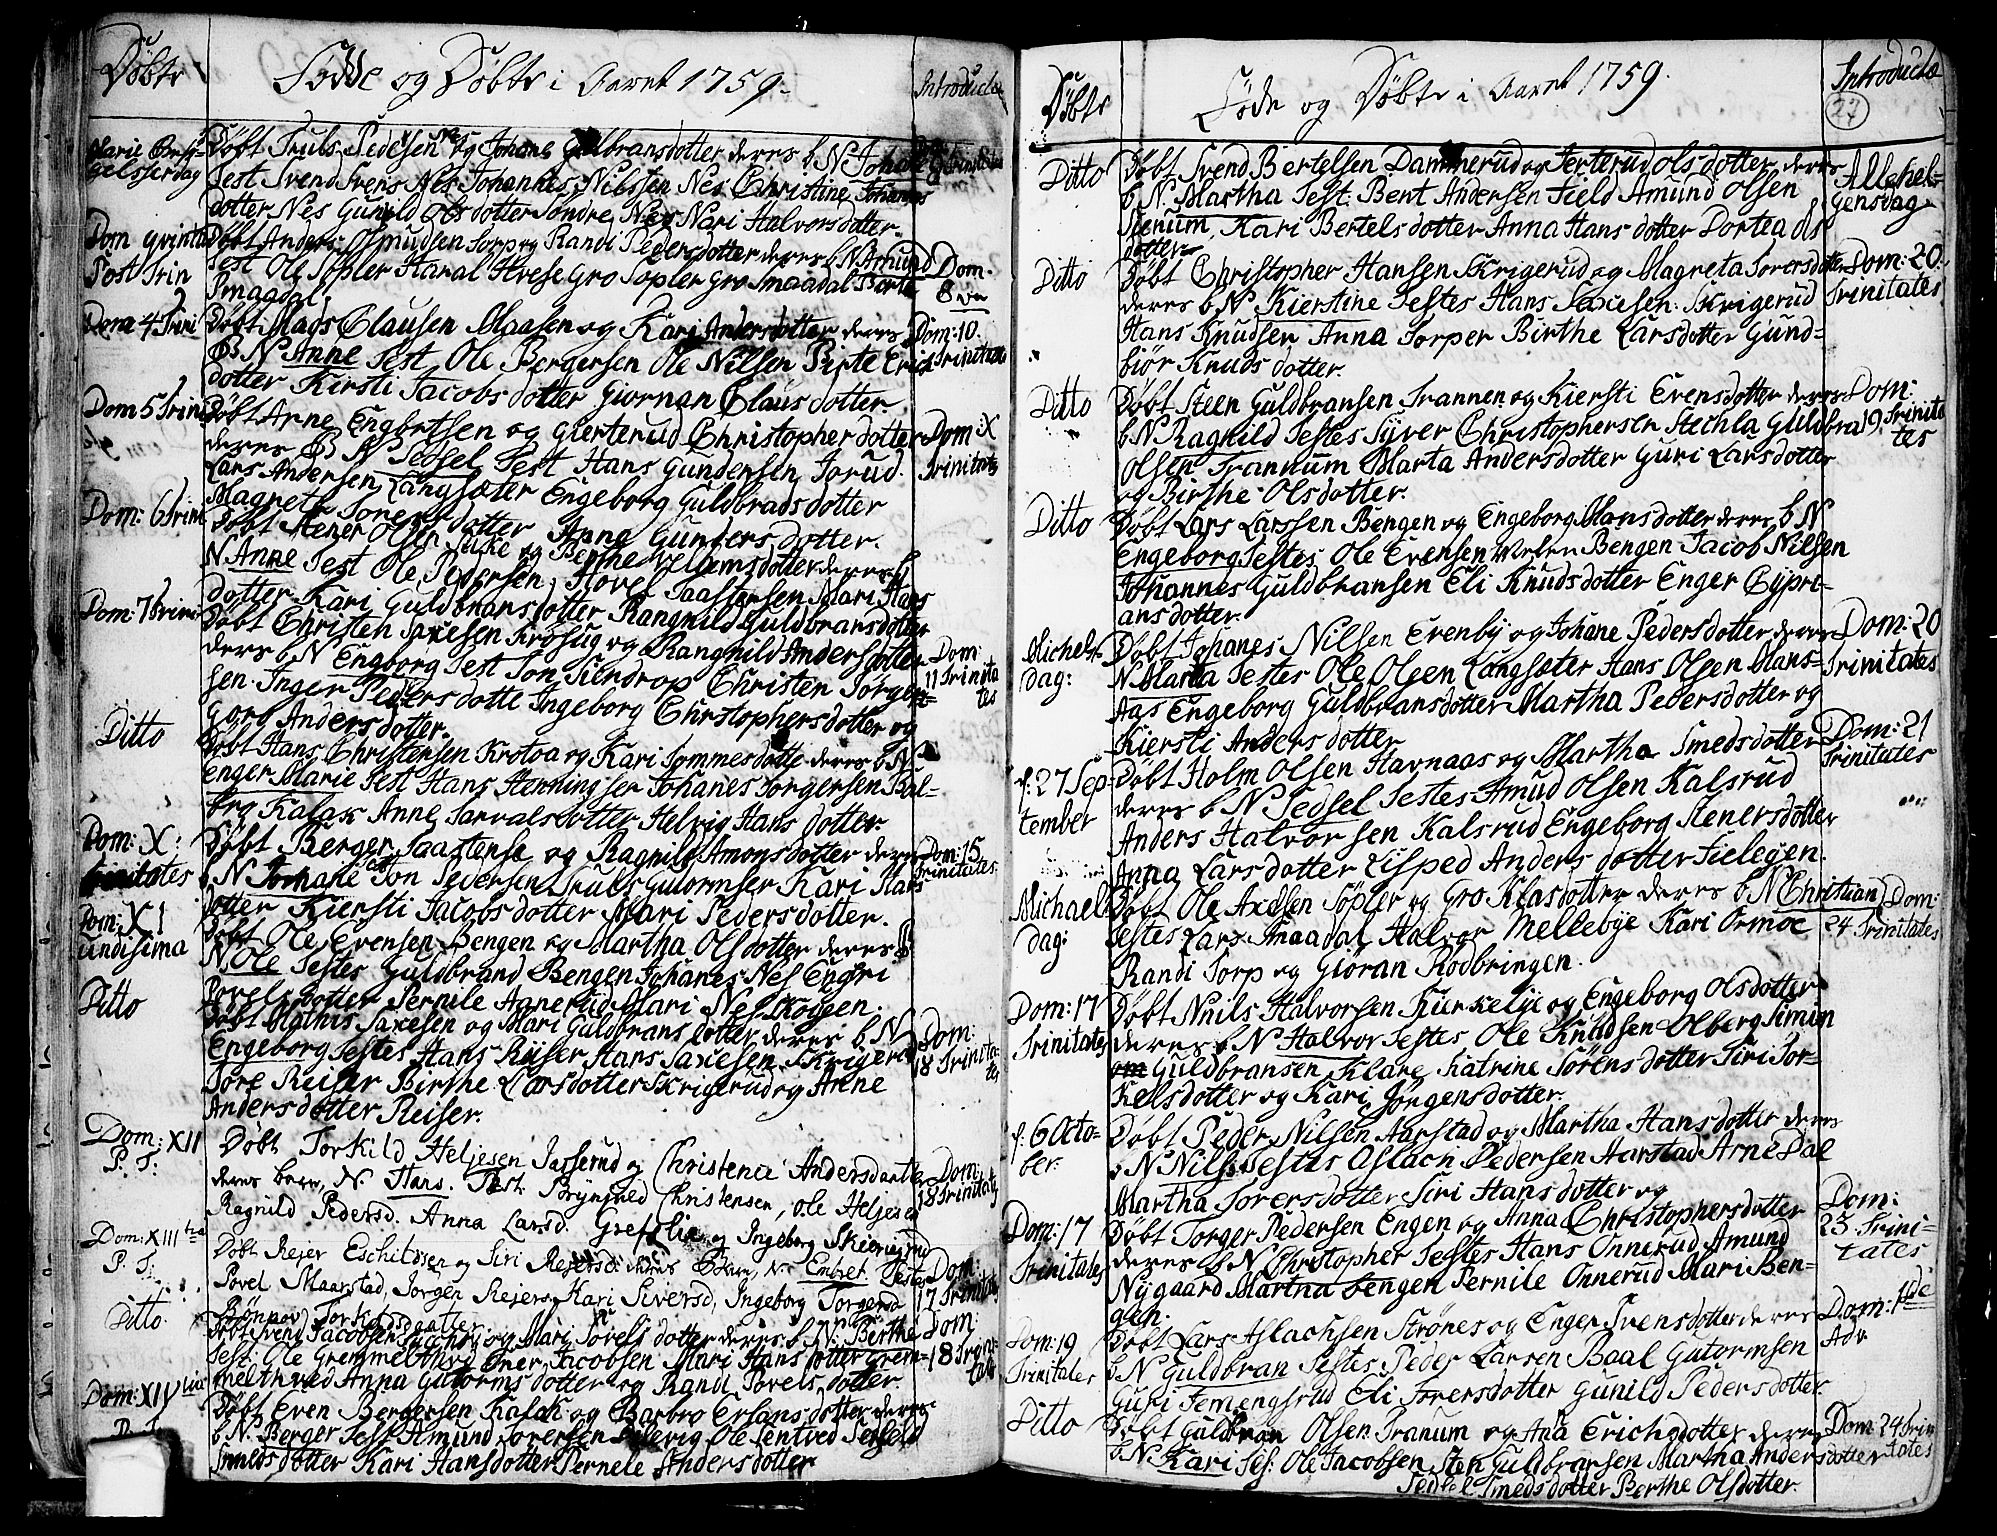 Döbte
Födde og Döbte i Aaret 1759.
Introducte
Marie Besø-
gelsesdag
Döbt Truls Pedersen Nes og Johane Gulbransdotter deres b N Johan
Test Svend Svens Nes Johannes Nilssen Nes Christine Johannes
dotter Nes Gunild Olsdotter Söndre Nes Nari Halvorsdotter.
Dom qvinta
Post Trin
Döbt Anders Osmudsen Sorp og Randi Pedersdotter deres b N Amund
Test Ole Söpler Haral Hvese Gro Söpler Gro Smaadal Berte
Smagdal.
Dom:
8va
Dom 4 Trini
Döbt Mads Clausen Maasen og Kari Andersdotter deres
B N Anne Test Ole Bergersen Ole Nilssen Birte Erics
dotter Kirsti Jacobsdotter Giornan Clausdotter.
Dom: 10.
Trinitatis
Dom 5 Trini
Döbt Arne Engbretsen og Gierterud Christopherdotter
deres B N Sedsel Test Hans Gundersen Jorud.
Lars Andersen Langsæter Engeborg Guldbradsdotter
Magnete Soresdotter Anna Gundersdotter.
Dom: X
Trinitatis
Dom: 6 Trini
Döbt Stener Olsen Silke og Berthe Velumsdotter deres b
N Anne Test Ole Pedersen, Hovel Saastensen Mari Hans
dotter Kari Guldbransdotter Rangnild Guldbransdotter
Dom: 7 Trini
Döbt Christen Saxesen Krosug og Rangnild Andersdotter
deres b N Engborg Test Jon Siendrop Christen Jörgen-
sen. Inger Pedersdotte Ingeborg Christophersdotter og
Goro Andersdotter.
Dom:
11 Trinita
tes
Ditto
Döbt Hans Christensen Krotoa og Kari Tommesdotte deres b N
Enger Marie Test Hans Henningser Johanes Jorgersen Bal-
brg Kalax Anne Sarvalsdotter Helvig Hans dotter.
Dom: X:
Trinitates
Döbt Berger Saastense og Ragnild Amonsdotter deres
b N Johane Test Jon Pedersen Truls Gutormser Kari Hans
dotter Kiersti Jacobsdotter Mari Pedersdotter.
Dom: 15
Trinitates
Dom: XI
undisima
Döbt Ole Evensen Bengen og Martha Olsdotter deres B
N Ole Testes Guldbrand Bengen Johanes Nes Engbri
Povelsdotter Pernile Hanerud Mari Nes skogen.
Ditto
Döbt Mathis Saxesen og Mari Guldbransdotter deres b N
Engeborg Testes Hans Reiser Hans Saxesen Skrigerud
Tore Reiser Birthe Larsdotter Skrigerud og Anne
Andersdotter Reiser.
Dom:
18 Trinita-
tes
Dom: XII
P. T:
Döbt Torkild Heljesen Jasserud og Christence Andersdaatter
deres barn, N. Hans. Test. Brynjuld Christensen, Ole Heljesen
Ragnild Pedersd. Anna Larsd. Grefslie og Ingeborg Skierigrud
Dom:
18 Trinitatis
Dom: XIII tia
P. T:
Döbt Rejer Eschildsen og Siri Rejersd: deres Barn, N. Embret. Testes
Povel Maarstad, Jörgen Rejers. Kari Siversd, Ingeborg Torgersd.
Rönnov Torkildsdaatter.
Dom:
17 Trinitatis
Ditto
Döbt Svend Jacobsen og Mari Povelsdotter deres b. N: Berthe
Test: Ole Gremmelthved Iver Jacobsen Mari Hansdotter Grem-
melthved Anna Gutormsdotter og Randi Povelsdotter.
Dom:
18 Trini-
tatis
Dom: XIV
P. T.
Döbt Even Bergersen Kalsh og Barbro Ersans dotter deres
b. N. Berger Test Amund Sorersen Helevig Ole Tentved Sedsels
Svendsdotter Kari Hansdotter Pernele Andersdotter
Döbte
Föde og Döbte i Aaret 1759.
Introducte
27
Ditto
Döbt Svend Bertelsen Dammerud og Jerterud Olsdotter deres
b N. Martha Test: Bent Andersen Field Amund Olsen
Stenum, Kari Bertelsdotter Anna Hansdotter Dortea Ols
dotter
Allehel-
gensdag
Ditto
Döbt Christopher Hansen Skrigerud og Magreta Sorersdotter
deres b N Kierstine Testes Hans Saxesen: Skrigerud
Hans Knudsen Anna Sorper Birthe Larsdotter Gund-
biör Knudsdotter.
Dom: 20.
Trinitates
Ditto
Döbt Steen Guldbransen Trannen og Kiersti Evensdotter deres
b N Ragnild Testes Syver Christophersen Stechla Guldbra
Olsen Trannum Marta Andersdotter Guri Larsdotter
og Birthe Olsdotter.
Dom:
19 Trinita
tes
Ditto
Döbt Lars Larssen Bengen og Engeborg Mansdotter deres b N
Engeborg Testes Ole Evensen Bengen Jacob Nilsen
Johannes Guldbransen Eli Knudsdotter Enger Cypri-
ansdotter.
Michels-
dag:
Döbt Johanes Nilsen Evenby og Johane Pedersdotter deres
N Marta Testes Ole Olsen Langsæter Hans Olsen Mans-
Aas Engeborg Guldbransdotter Martha Pedersdotter og
Kiersti Andersdotter
Dom: 20
Trinitates
f: 27 Sep-
tember
Döbt Holm Olsen Havnaas og Martha Smedsdotter
deres b N Sedsel Testes Amud Olsen Kalsrud
Anders Halvorsen Kalsrud Engeborg Stenersdotter
Anna Larsdotter Lisped Andersdotter Fielegen.
Dom: 21
Trinitates
Michaels
dag:
Döbt Ole Axelsen Söpler og Gro Klasdotter deres b N Christian
Testes Lars Smaadal Halvor Mellebye Kari Ormoe
Randi Sorp og Giöran Rodbringen.
Dom:
24 Trinitates
Dom: 17
Trinitates
Döbt Nnils Halvorsen Kirkelye og Engeborg Olsdotter
deres b N Halvor Testes Ole Knudsen Olberg Simin
Guldbransen Klare Katrine Sörensdotter Siri Tor-
Kelsdotter og Kari Jörgensdotter.
f: 6 Octo-
ber:
Döbt Peder Nilsen Aarstad og Martha Hansdotter deres
b N Nils: Testes Aslach Pedersen Harstad Arne Dal
Martha Sorersdotter Siri Hansdotter og
Dom: 17
Trinitales
Döbt Torger Pedersen Engen og Anna Christophersdotter
deres b N Christopher Testes Hans Onnerud Amund
Nygaard Martna bengen Pernile Onnerud Mari Ben-
gen.
Dom:
23 Trini-
tates
Dom: 19
Trinitales
Döbt Lars Aslachsen Strönes og Enger Svensdotter deres
b N Guldbran Testes Peder Larsen Baal Gutormsen
Guri Jemengsrud Eli Sorersdotter Gunild Pedersdotter.
Dom: 1de
Adv
Ditto
Döbt Guldbran Olsen Tranum og Ana Erichsdotter deres
b N Kari Tes: Ole Jacobsen Sten Guldbransen Martha Andersdotter
Sedsel Smedsdotter Berthe Olsdotter.
Dom 24 Trin
itates